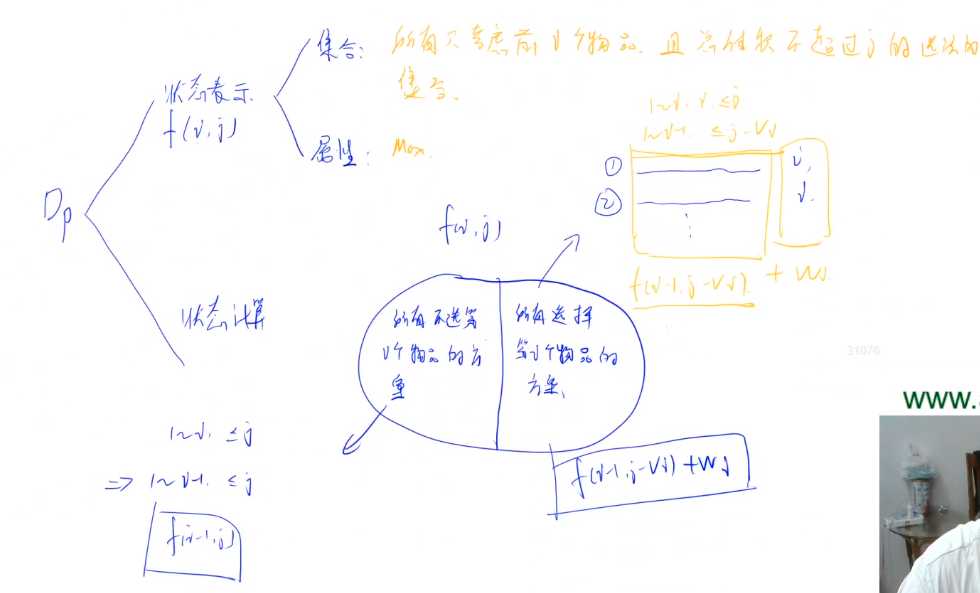 Dp
状态表示
f(i,j)
集合:
所有只考虑前i个物品,且总体积不超过j的选法的
集合.
属性:
Max.
状态计算
f(i,j)
所有不选第
i个物品的方
案
所有选择
第i个物品的
方案.
1~i. ≤j
⇒ 1~i-1. ≤j
f(i-1,j)
f(i-1,j-Vi)+Wi
1~i. ≤j
1~i-1. ≤j-Vi
①
②
⋮
i,
i.
f(i-1,j-Vi) +Wi
31076
www.